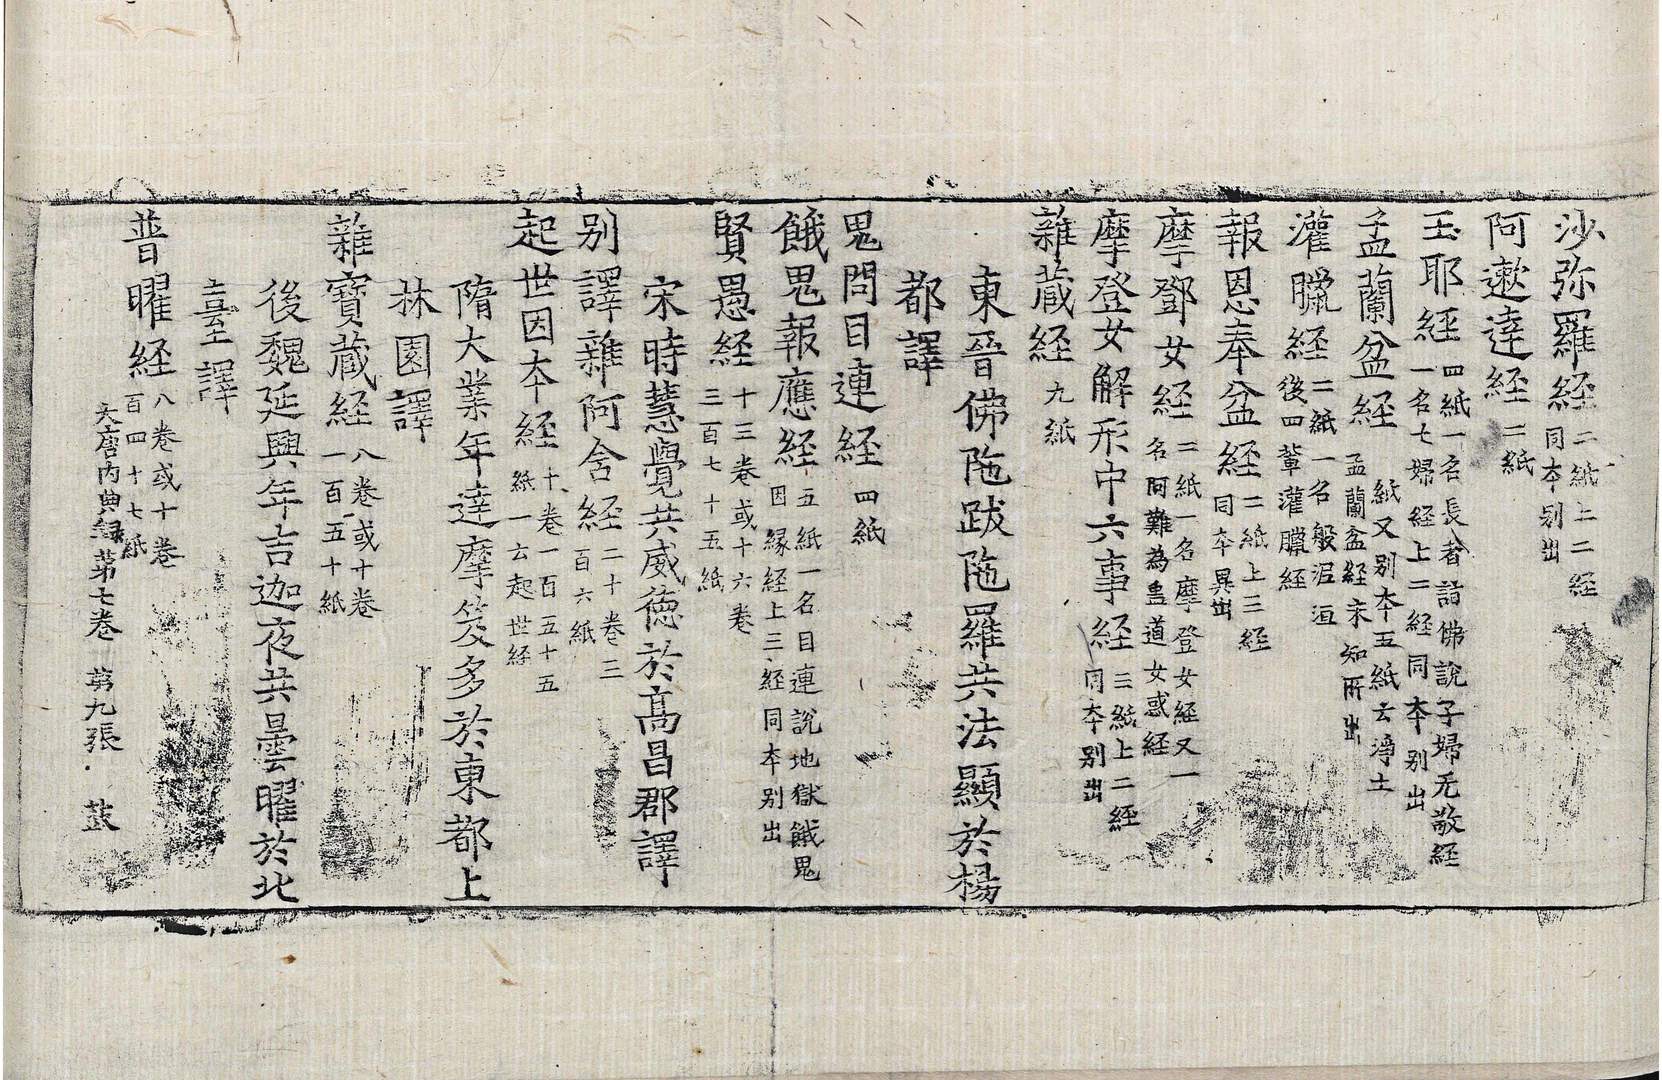 沙弥羅経二紙上二経同本别出
阿遬達経二紙
玉耶経四紙一名長者詣佛說子婦无敬経一名七婦経上二経同本别出
盂蘭盆経紙又别本五紙云淨土孟蘭盆経未知所出
灌臘経二紙一名般泥洹後四輩灌臘経
報恩奉盆経二紙上三経同本異出
摩鄧女経二紙一名摩登女経又一名阿難為蠱道女惑経
摩登女解形中六事経三紙上二経同本别出
雜蔵経九紙
東晉佛陁跋陁羅共法顯於楊
都譯
鬼問目連経四紙
餓鬼報應経五紙一名目連說地獄餓鬼因縁経上三経同本别出
賢愚経十三卷或十六卷三百七十五紙
宋時慧覺共威徳於髙昌郡譯
别譯雜阿含経二十卷三百六紙
起世因本経十卷一百五十五紙一云起世経
隋大業年達摩笈多於東都上
林園譯
雜寳蔵経八卷或十卷一百五十紙
後魏延興年吉迦夜共曇曜於北
臺譯
普曜経八卷或十卷百四十七紙
大唐内典録第七卷 苐九張 鼓